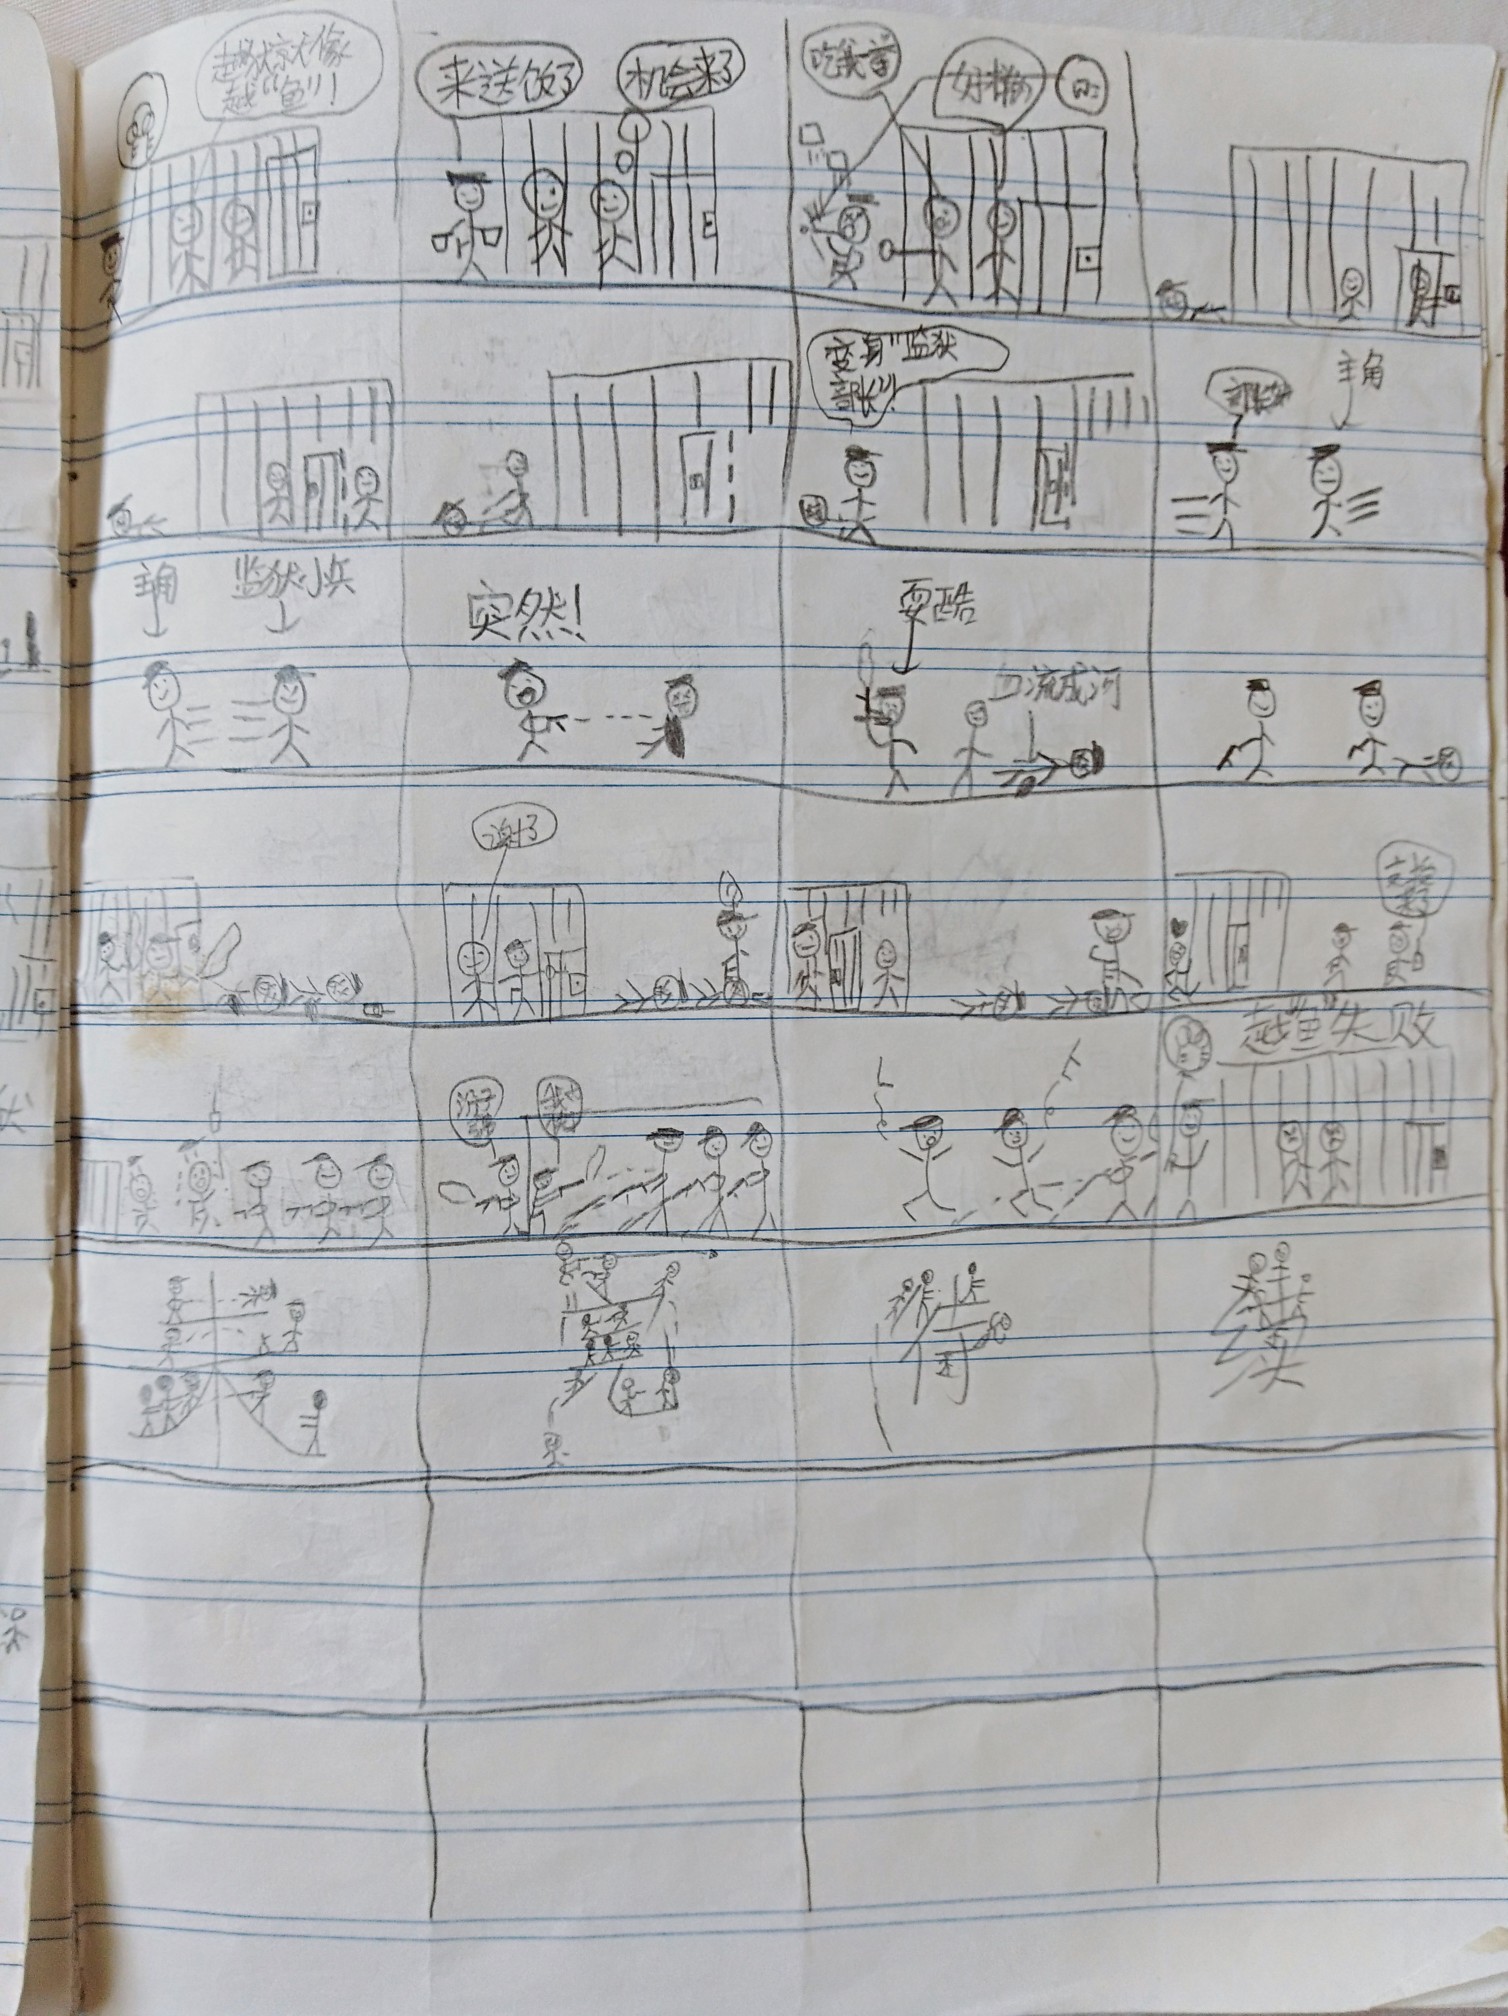 越狱就像
越“鱼”!
来送饭了
机会来了
吃我一掌
好样的
变身"监狱
部长"!
部长好
主角
主角
监狱小兵
突然!
耍酷
血流成河
谢了
越鱼失败
未
完
待
续